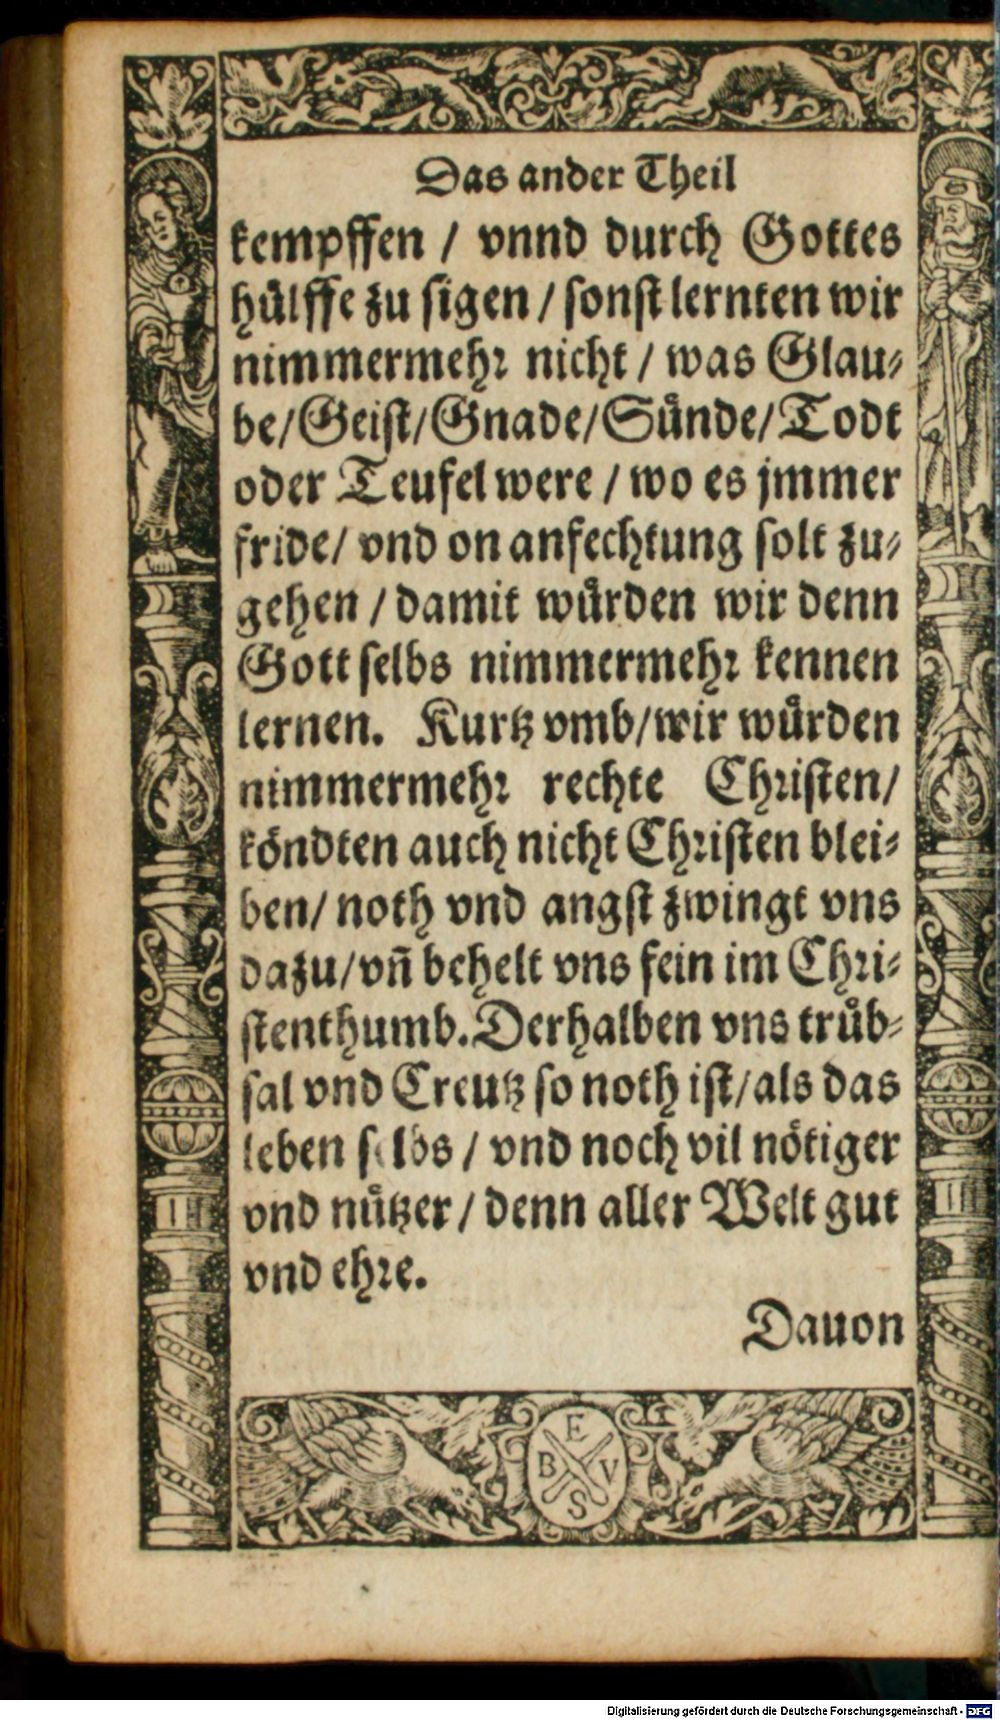 Das ander Theil
kempffen / vnnd durch Gottes
hülffe zu sigen / sonst lernten wir
nimmermehr nicht / was Glau-
be/Geist/Gnade/Sünde/Todt
oder Teufel were / wo es jmmer
fride/ vnd on anfechtung solt zu-
gehen / damit würden wir denn
Gott selbs nimmermehr kennen
lernen. Kurtz vmb/wir würden
nimmermehr rechte Christen/
köndten auch nicht Christen blei-
ben/ noth vnd angst zwingt vns
dazu/vñ behelt vns fein im Chri-
stenthumb. Derhalben vns trůb-
sal vnd Creutz so noth ist/als das
leben selbs / vnd noch vil nötiger
vnd nützer / denn aller Welt gut
vnd ehre.
Dauon
E
B V
S
Digitalisierung gefördert durch die Deutsche Forschungsgemeinschaft - DFG